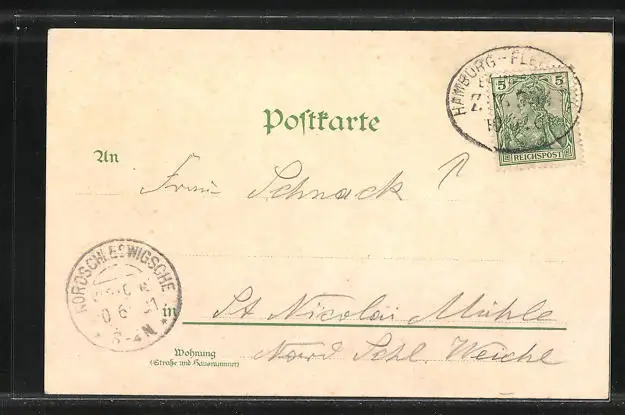 HAMBURG-FLE
5 5
REICHSPOST
Postkarte
An
Frau Schnack
NORDSCHLESWIGSCHE
in St Nicolai Mühle
Wohnung
(Straße und Hausnummer)
Nord Schl. Weiche